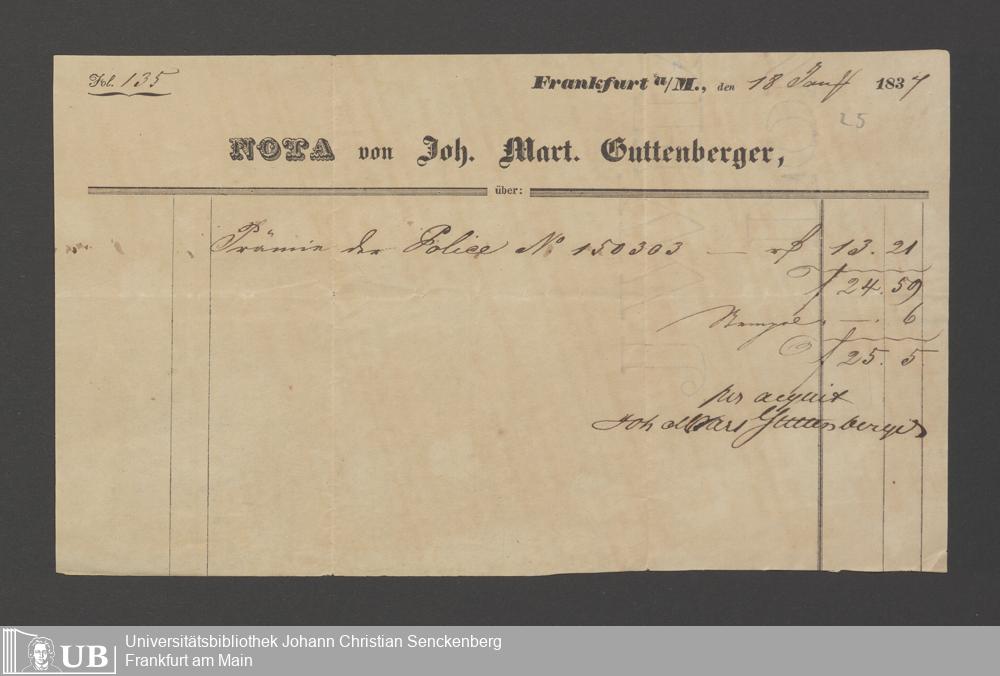 Fol. 135
Frankfurt a/M., den 18 Janr 1837
25
NOTA von Joh. Mart. Guttenberger,
über:
Prämie der Police No 150303 — rf 13. 21
f 24. 59
Stempel . — . 6
f 25. 5
per acquit
Joh Mart Guttenberger
Universitätsbibliothek Johann Christian Senckenberg
Frankfurt am Main
UB